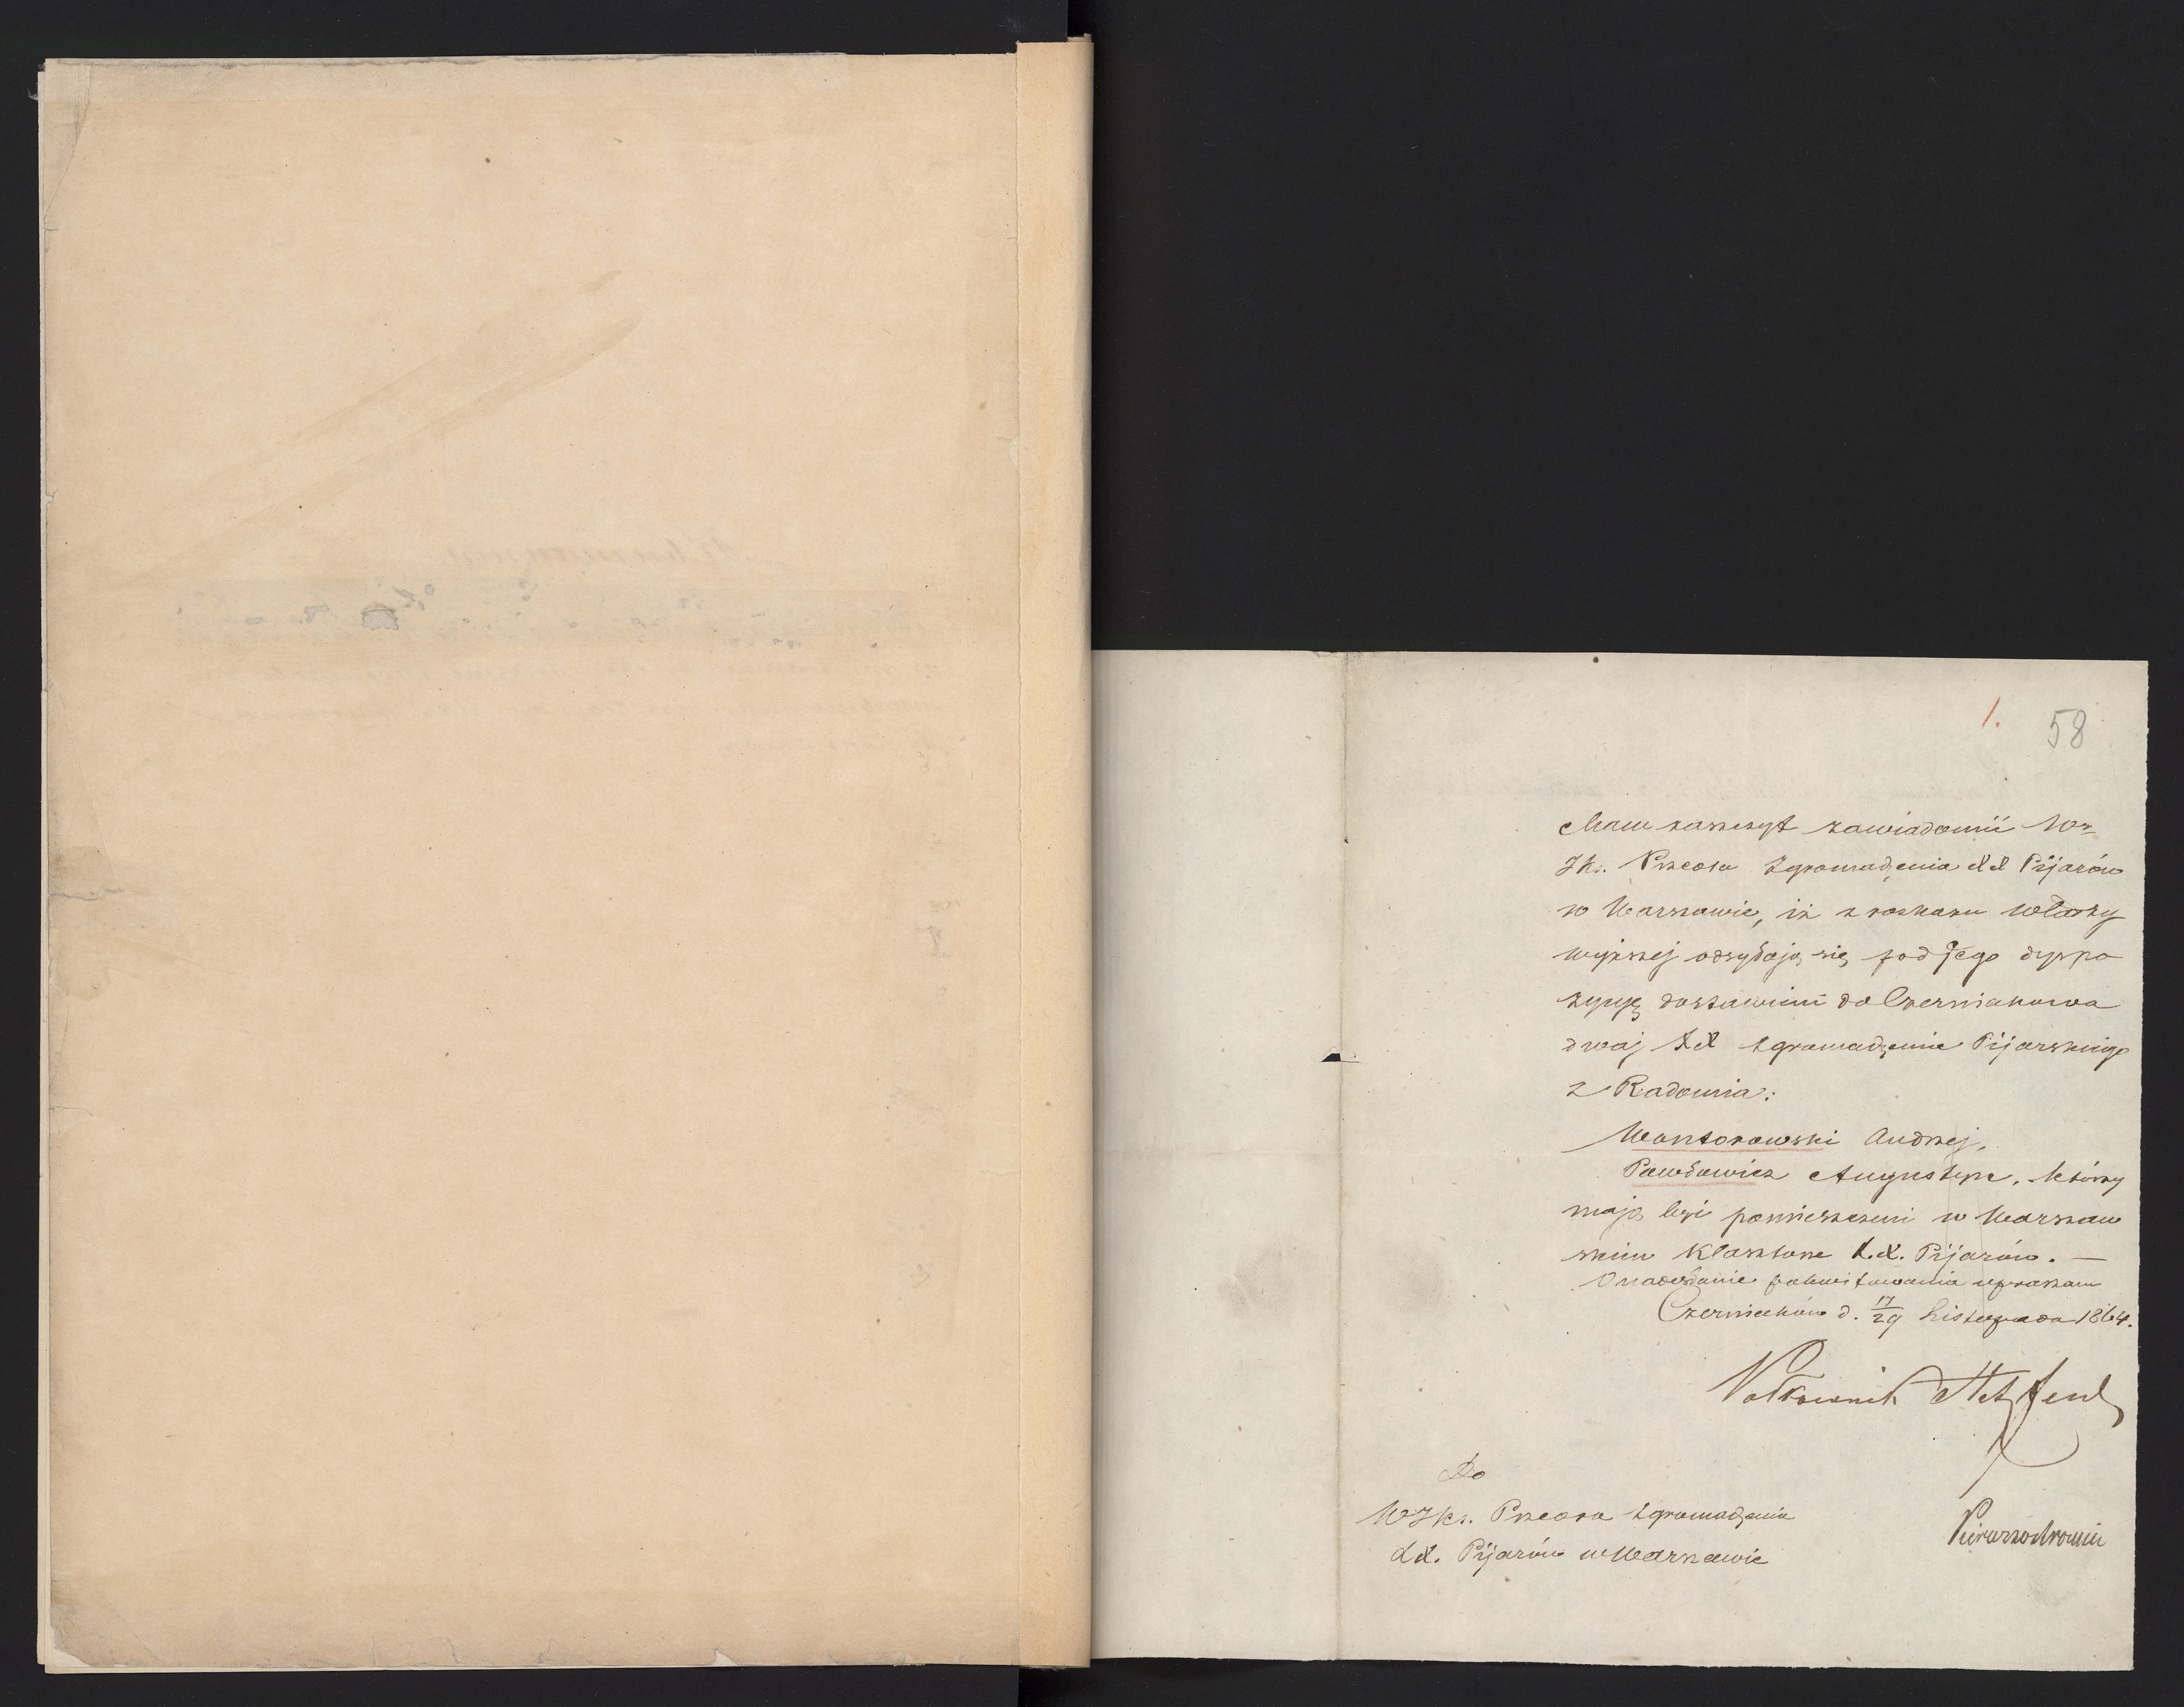 1. 58
Mam zaszczyt zawiadomić W
JKs. Przeora Zgromadzenia XX Pijarów
w Warszawie, iż z rozkazu Władzy
wyższej odsyłają się pod Jego dyspo
zycyę dostawieni do Czerniakowa
dwaj XX Zgromadzenia Pijarskiego
z Radomia:
Wontorowski Andrzej,
Pawłowicz Augustyn, którzy
mają być pomieszczeni w Warszaw
skim Klasztorze X.X. Pijarów. —
O nadesłanie pokwitowania upraszam
Czerniaków d. 17/29 Listopada 1864.
Półkownik
Do
WJKs. Przeora Zgromadzenia
XX. Pijarów w Warszawie